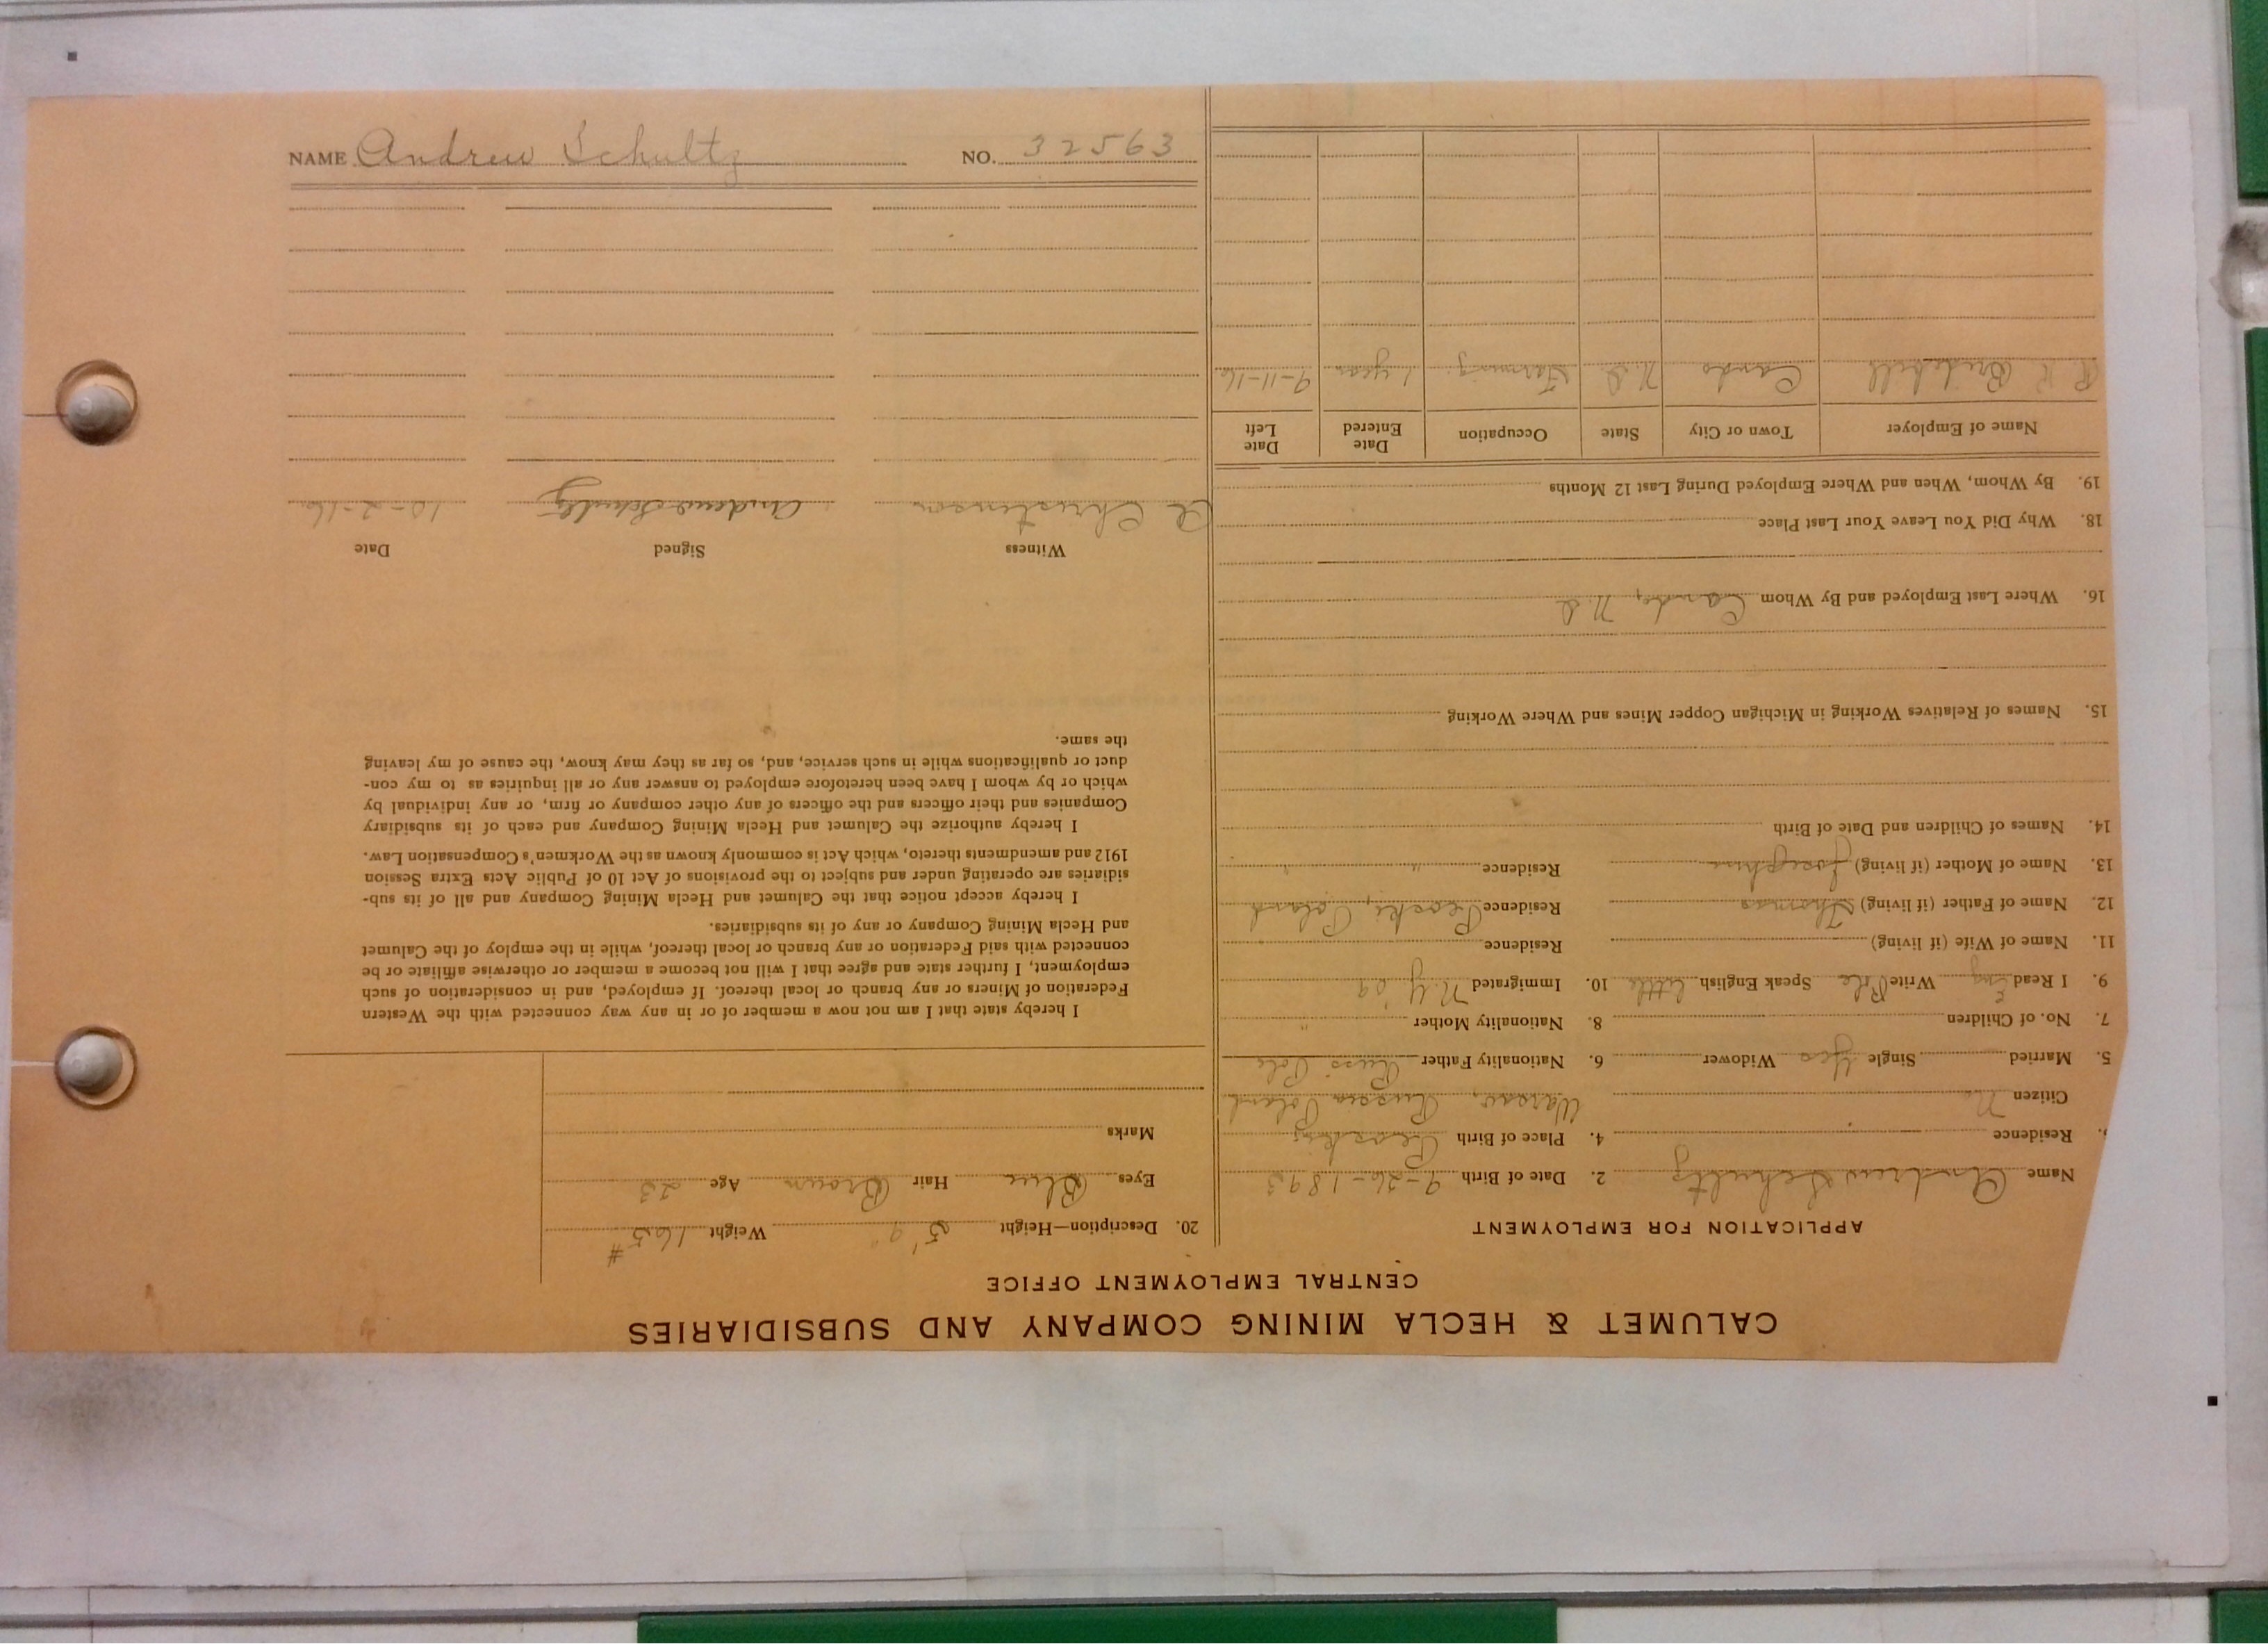 NAME Andrew Schultz NO. 32563
CALUMET & HECLA MINING COMPANY AND SUBSIDIARIES
CENTRAL EMPLOYMENT OFFICE
APPLICATION FOR EMPLOYMENT
Name Andrew Schultz 2. Date of Birth 9-26-1893
Residence 4. Place of Birth
Citizen No Warsaw, Russia Poland
5. Married Single Yes Widower 6. Nationality Father Russ Pole
7. No. of Children 8. Nationality Mother "
9. I Read Eng Write Pole Speak English little 10. Immigrated N.Y '09
11. Name of Wife (if living) Residence
12. Name of Father (if living) Thomas Residence Poland
13. Name of Mother (if living) Josephine Residence " "
14. Names of Children and Date of Birth
15. Names of Relatives Working in Michigan Copper Mines and Where Working
16. Where Last Employed and By Whom Cando, N.D
18. Why Did You Leave Your Last Place
19. By Whom, When and Where Employed During Last 12 Months
Name of Employer Town or City State Occupation Date Entered Date Left
R. K. Cando N.D Farming 1 year 9-11-16
20. Description—Height 5' 9" Weight 165#
Eyes Blue Hair Brown Age 23
Marks
I hereby state that I am not now a member of or in any way connected with the Western
Federation of Miners or any branch or local thereof. If employed, and in consideration of such
employment, I further state and agree that I will not become a member or otherwise affiliate or be
connected with said Federation or any branch or local thereof, while in the employ of the Calumet
and Hecla Mining Company or any of its subsidiaries.
I hereby accept notice that the Calumet and Hecla Mining Company and all of its sub-
sidiaries are operating under and subject to the provisions of Act 10 of Public Acts Extra Session
1912 and amendments thereto, which Act is commonly known as the Workmen's Compensation Law.
I hereby authorize the Calumet and Hecla Mining Company and each of its subsidiary
Companies and their officers and the officers of any other company or firm, or any individual by
which or by whom I have been heretofore employed to answer any or all inquiries as to my con-
duct or qualifications while in such service, and, so far as they may know, the cause of my leaving
the same.
Witness Signed Date
Christenson Andrew Schultz 10-2-16